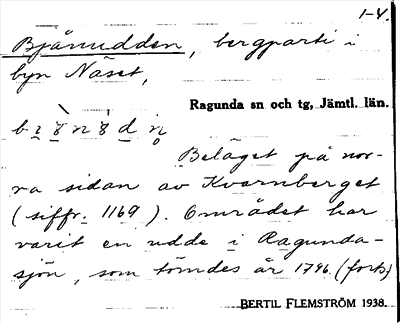 1-4.
Björnudden, bergparti i
byn Näset,
Ragunda sn och tg, Jämtl. län.
Beläget på nor-
ra sidan av Kvarnberget
(siffr. 1169). Området har
varit en udde i Ragunda-
sjön, som tömdes år 1796. (forts)
BERTIL FLEMSTRÖM 1938.